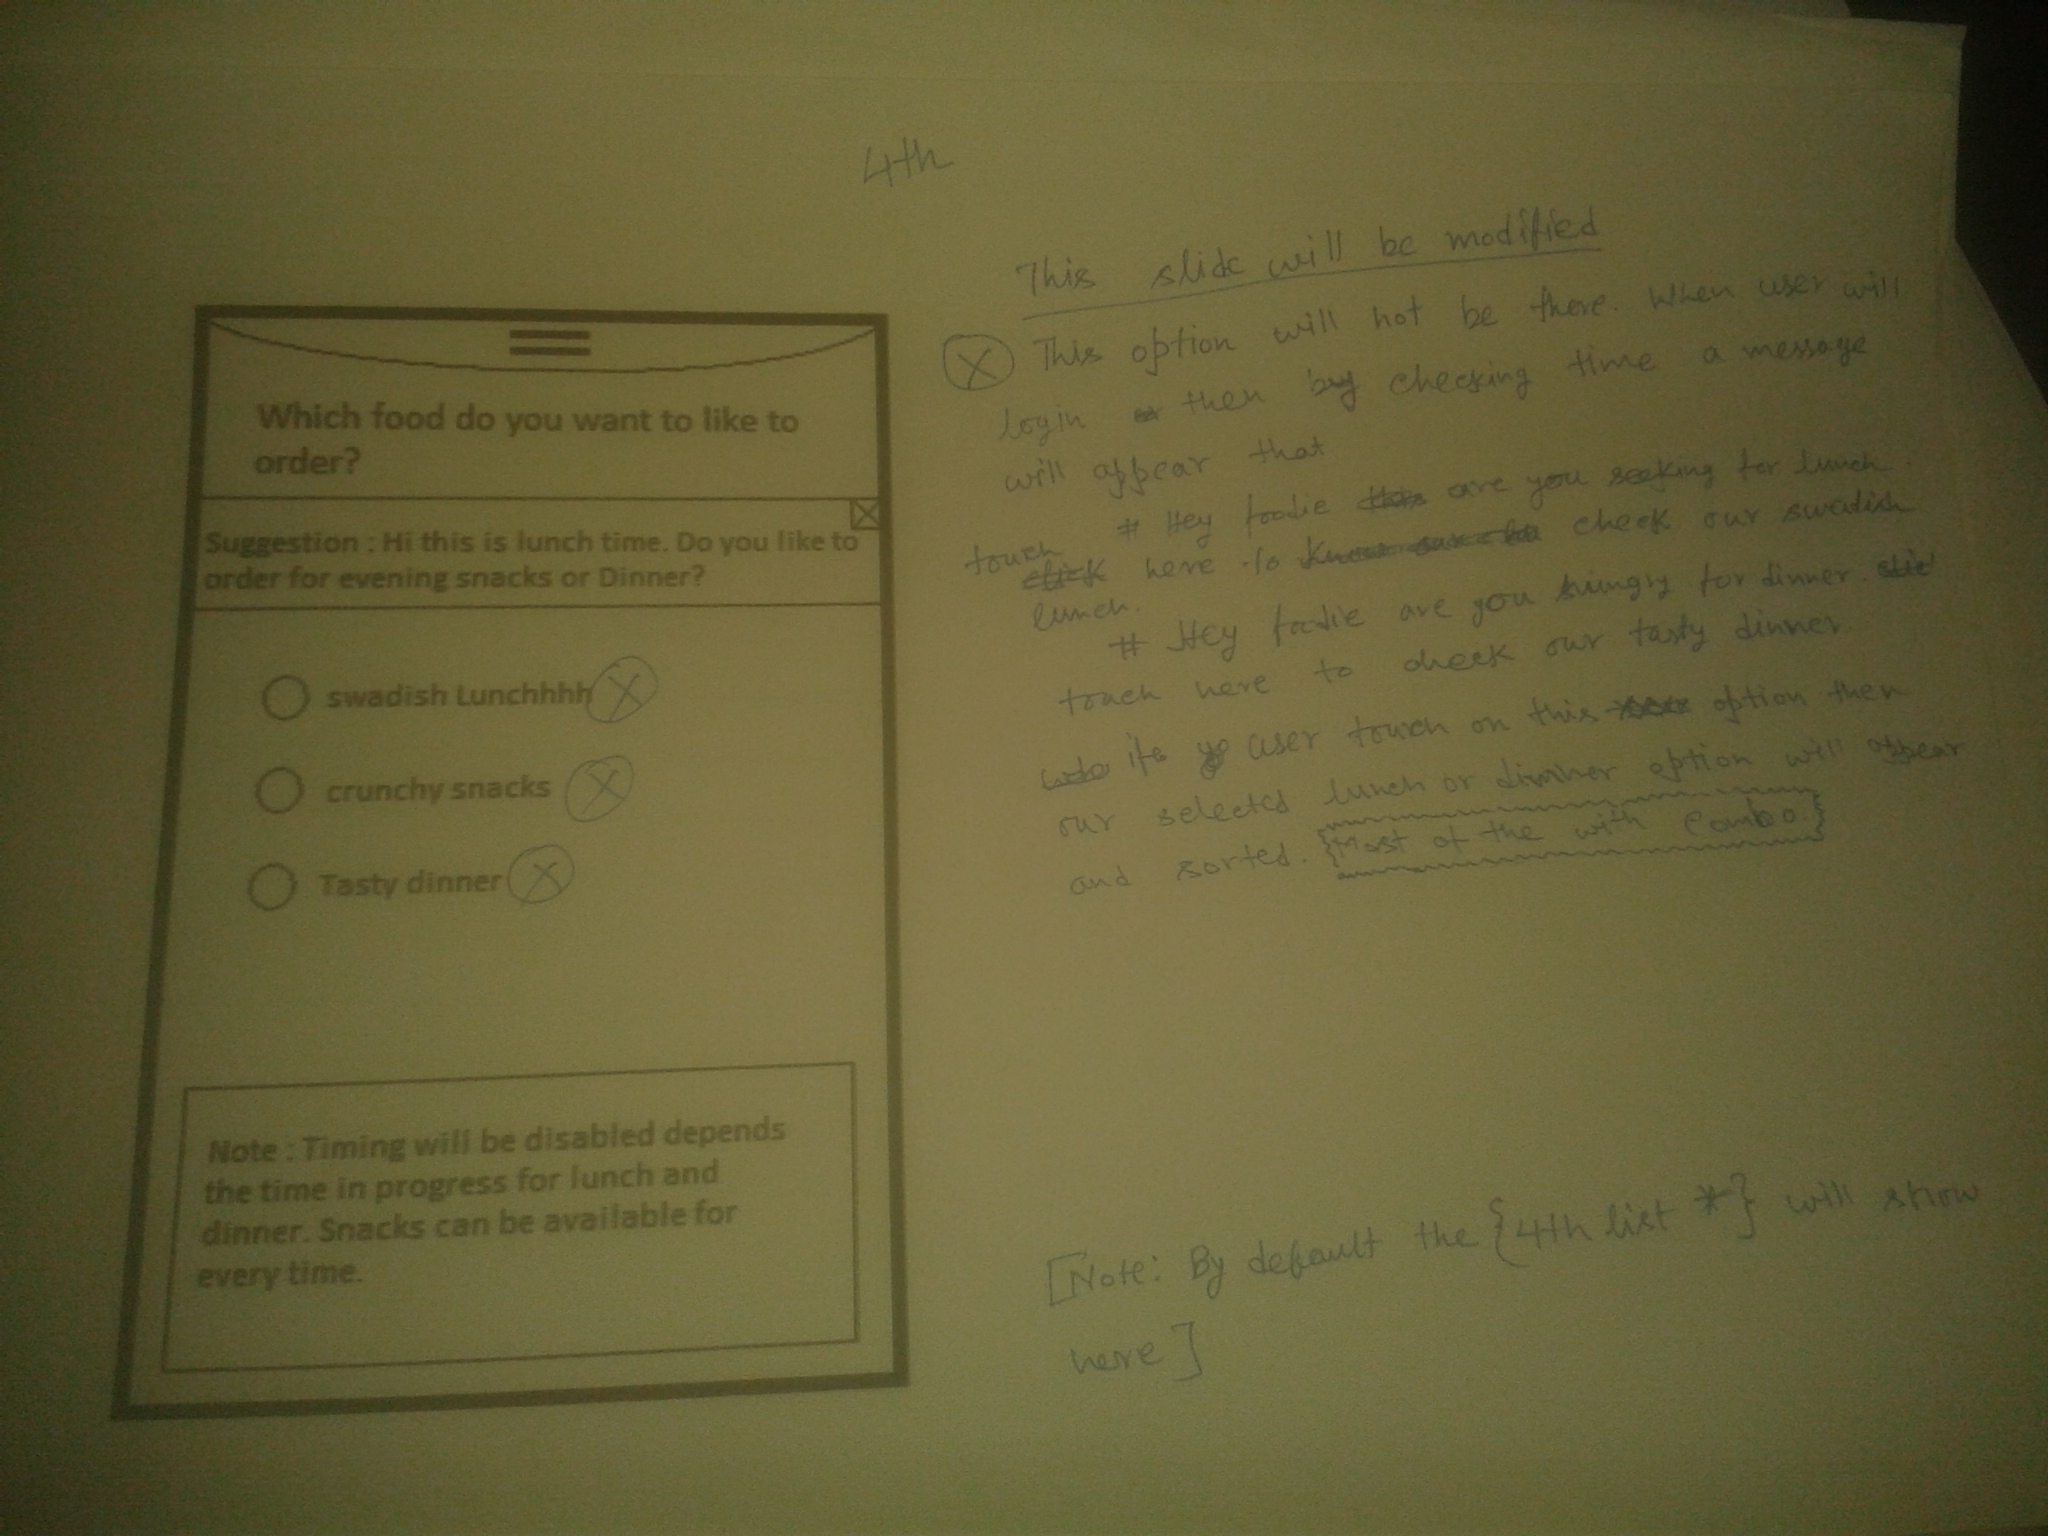 4th
Which food do you want to like to
order?
Suggestion : Hi this is lunch time. Do you like to
order for evening snacks or Dinner?
swadish Lunchhhh X
crunchy snacks X
Tasty dinner X
Note : Timing will be disabled depends
the time in progress for lunch and
dinner. Snacks can be available for
every time.
This slide will be modified
X This option will not be there. When user will
login then by checking time a message
will appear that
# Hey foodie are you seeking for lunch.
touch here to check our swadish
lunch.
# Hey foodie are you hungry for dinner.
touch here to check our tasty dinner.
if user touch on this option then
our selected lunch or dinner option will appear
and sorted. {Most of the with combo}
[Note: By default the {4th list *} will show
here]